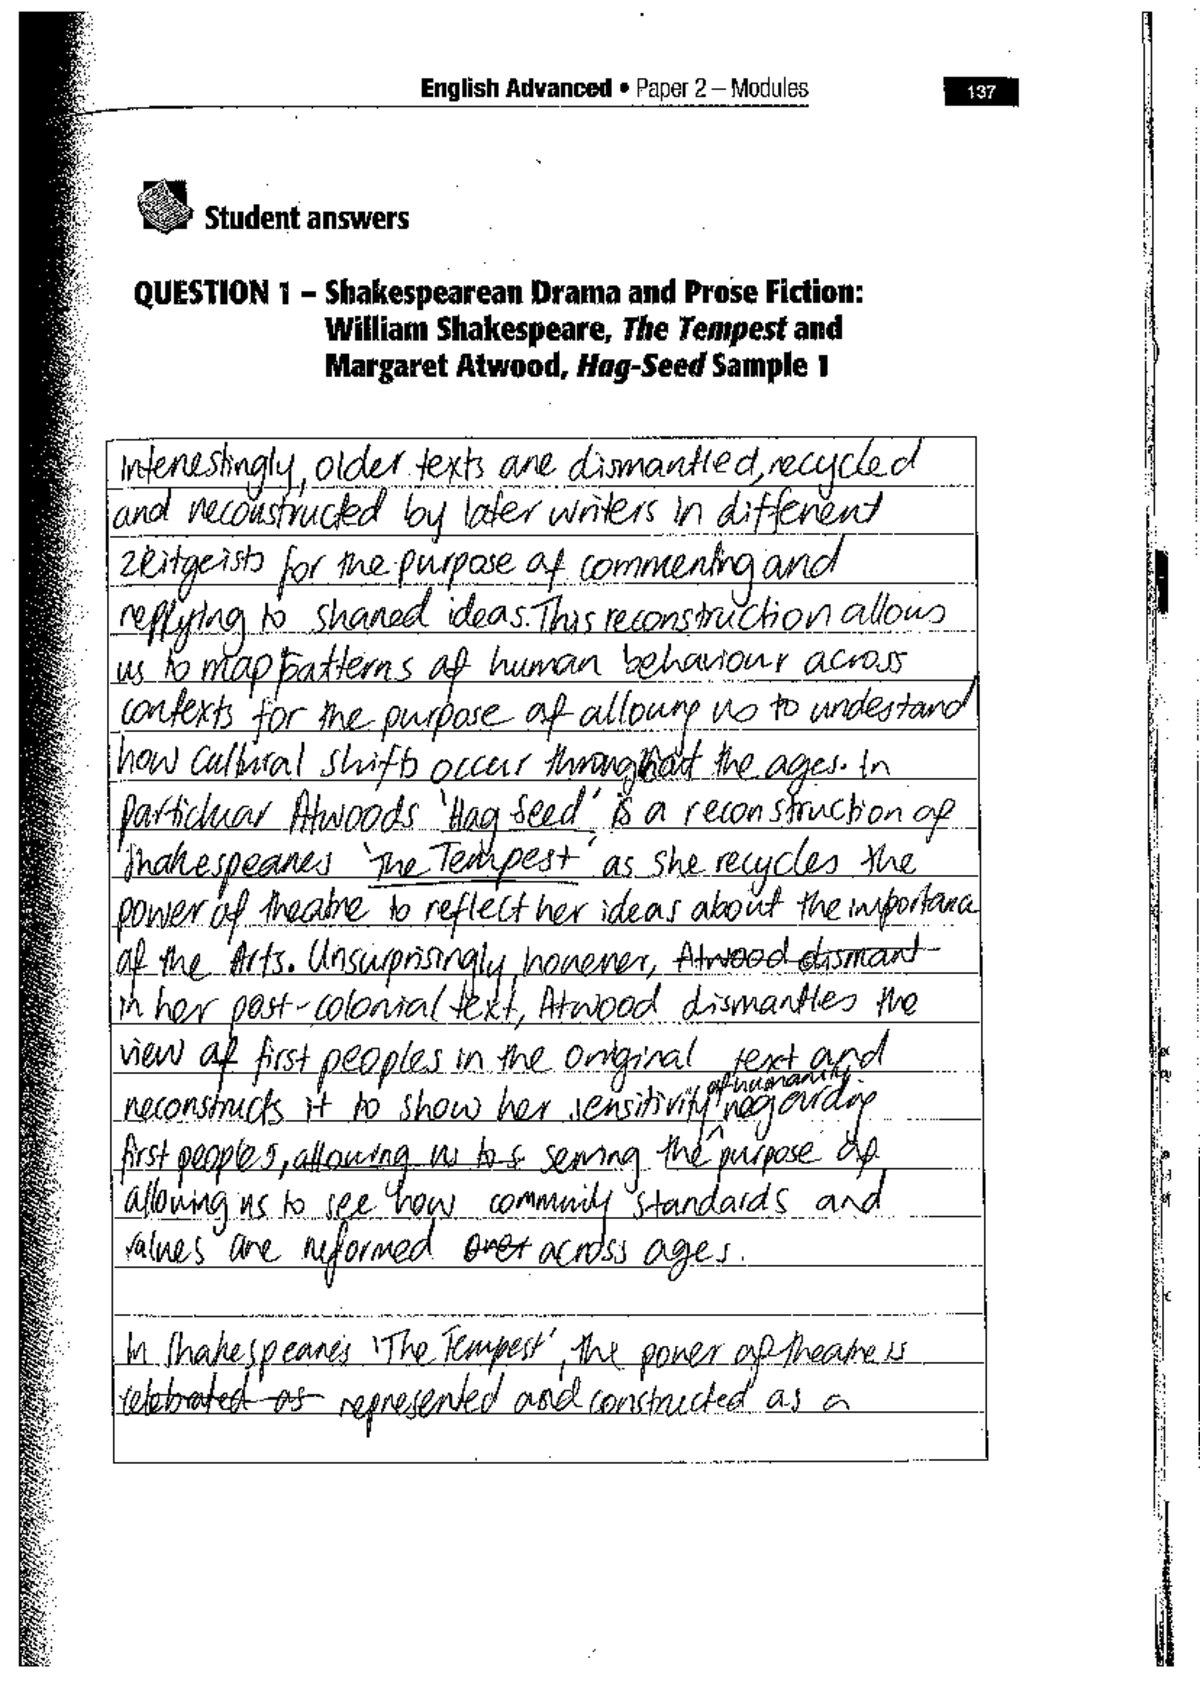 English Advanced • Paper 2 – Modules
137
Student answers
QUESTION 1 – Shakespearean Drama and Prose Fiction:
William Shakespeare, The Tempest and
Margaret Atwood, Hag-Seed Sample 1
Interestingly, older texts are dismantled, recycled
and reconstructed by later writers in different
zeitgeists for the purpose of commenting and
replying to shared ideas. This reconstruction allows
us to map patterns of human behaviour across
contexts for the purpose of allowing us to undestand
how cultural shifts occur throughout the ages. In
particluar Atwoods 'Hag Seed' is a reconstruction of
Shakespeares 'The Tempest' as she recycles the
power of theatre to reflect her ideas about the importance
of the Arts. Unsurprisingly, however, Atwood dismant
in her post-colonial text, Atwood dismantles the
view of first peoples in the original text and
reconstructs it to show her sensitivity of humanity regarding
first peoples, allowing us to s serving the purpose of
allowing us to see how community standards and
values are reformed over across ages.
In Shakespeare's 'The Tempest', the power of theatre is
celebrated as represented and constructed as a